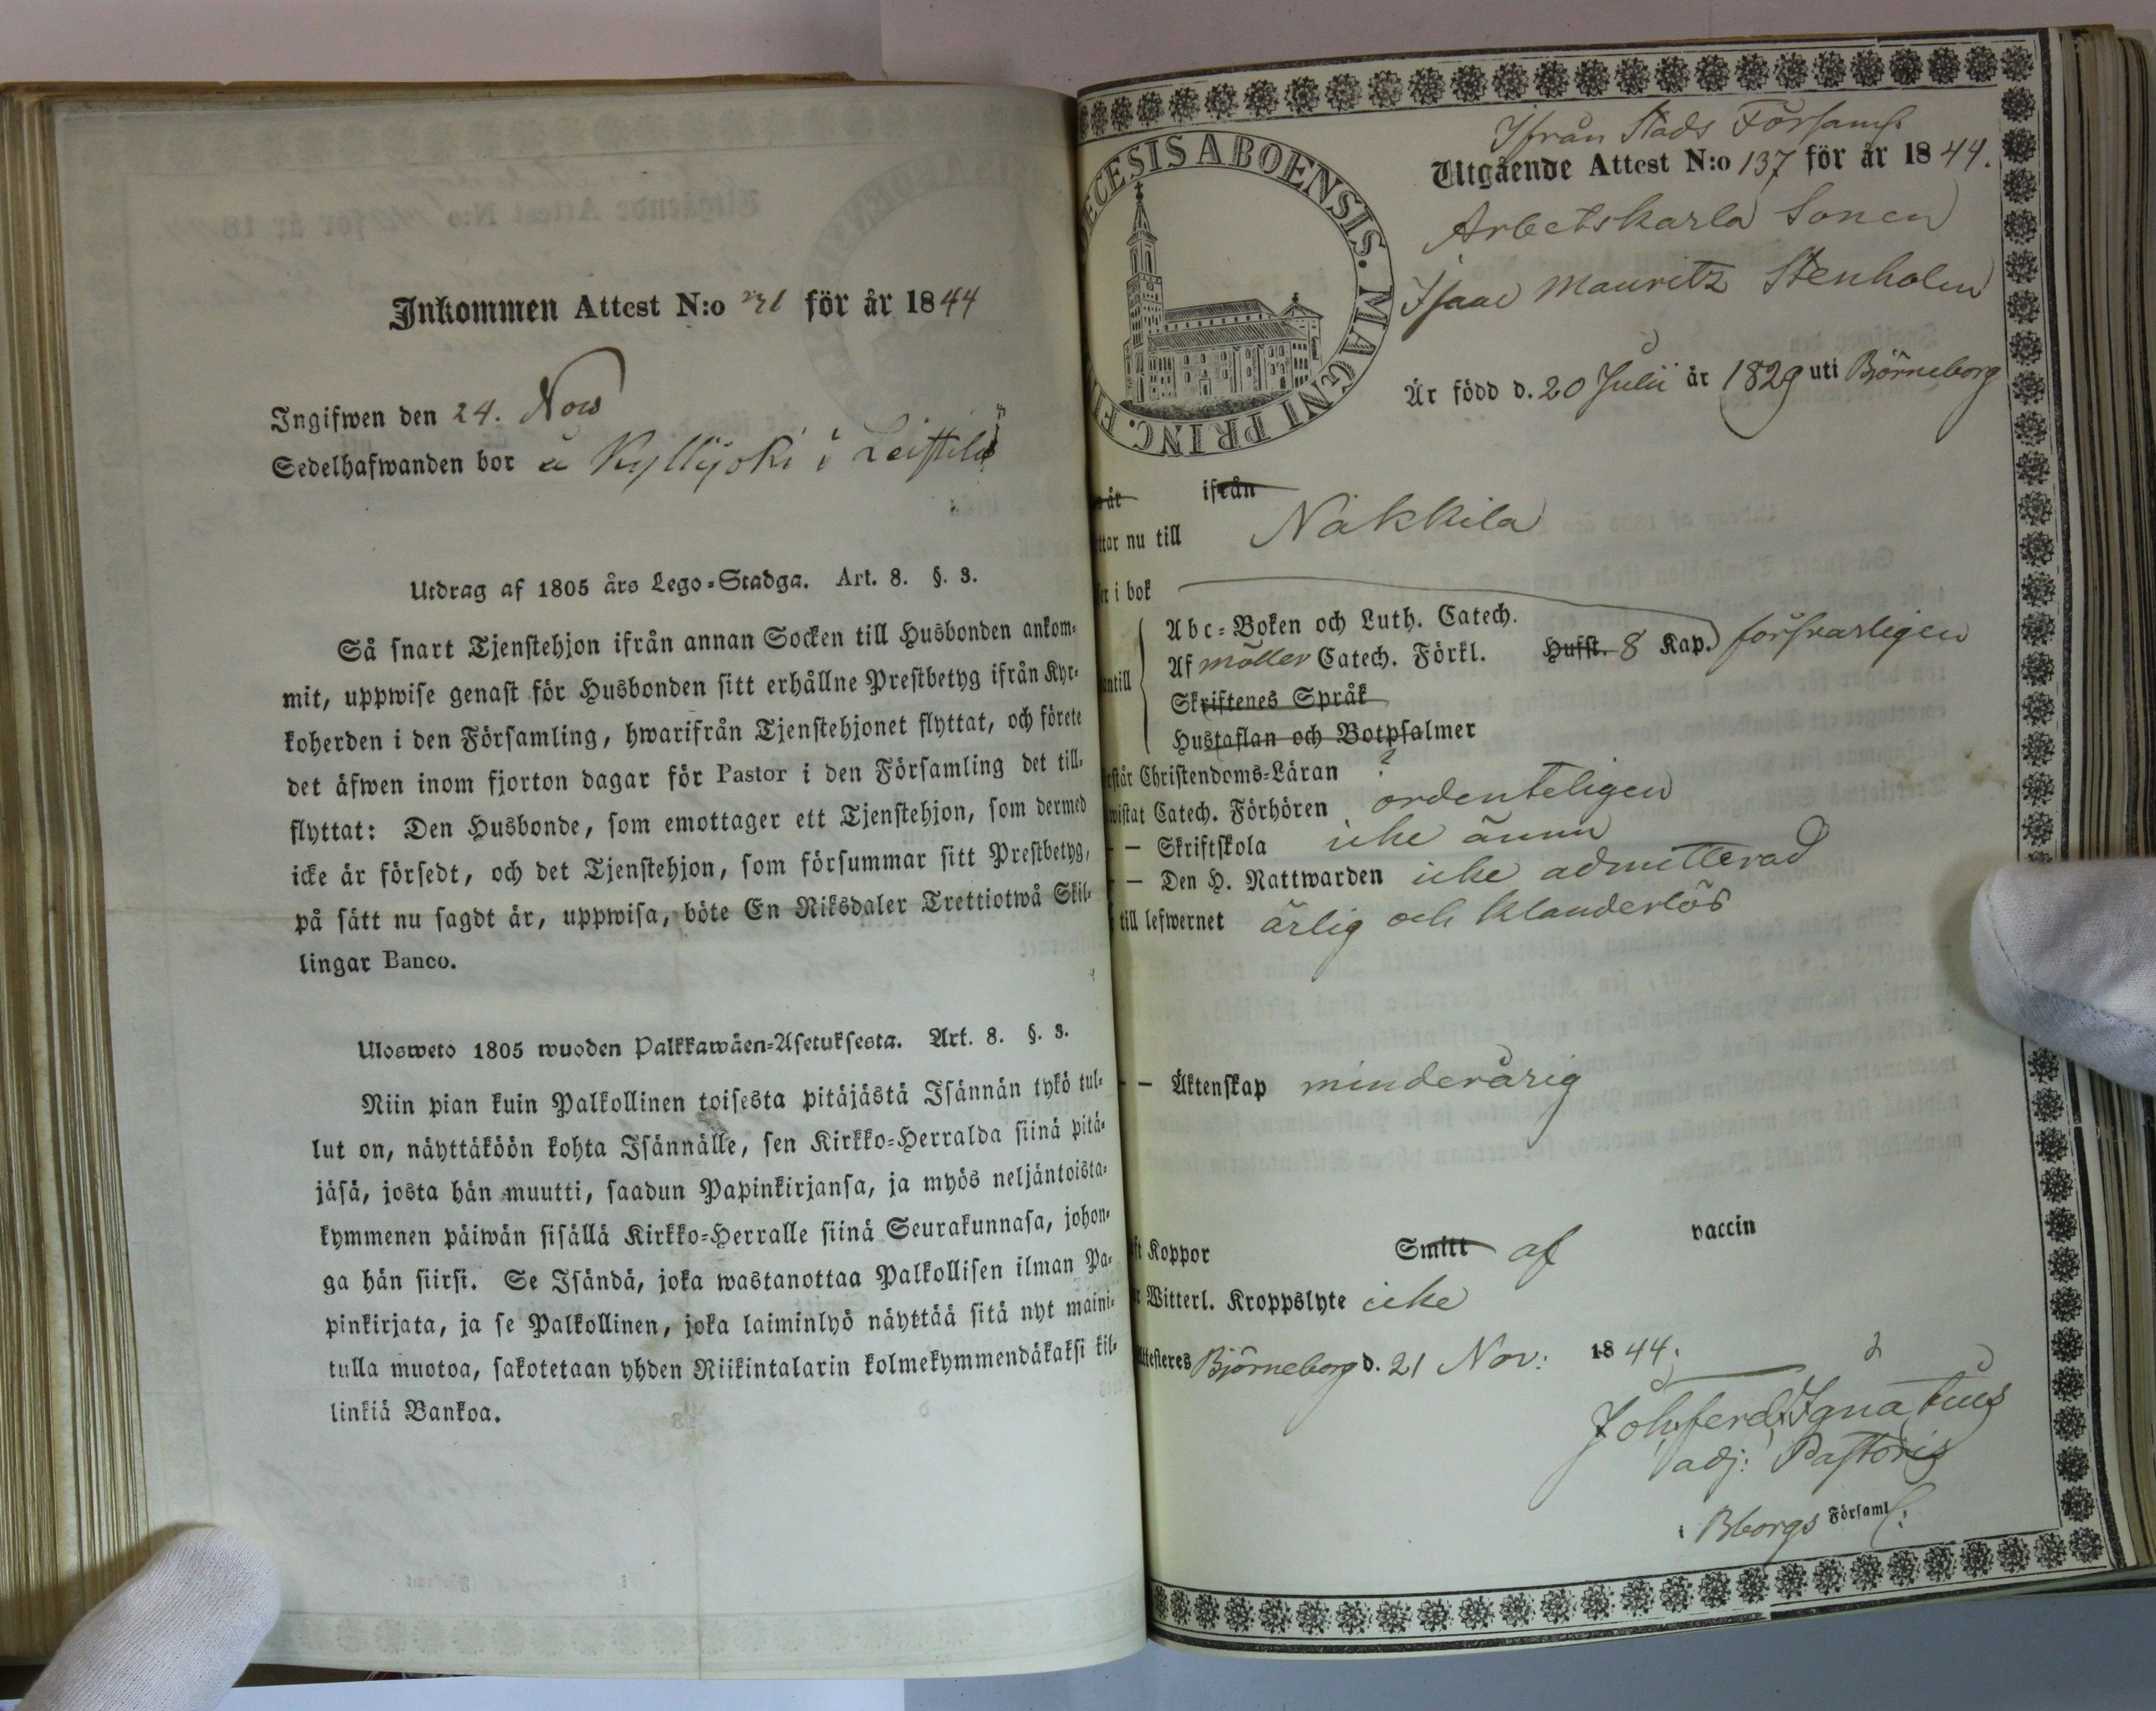 Inkommen Attest N:o för år 1844
Ingifwen den 24. Nov
Sedelhafwanden bor å Kyllijoki i Leistilä
Utdrag af 1805 års Lego-Stadga. Art. 8. §. 3.
Så snart Tjenstehjon ifrån annan Socken till Husbonden ankom-
mit, uppwise genast för Husbonden sitt erhållne Prestbetyg ifrån Kyr-
koherden i den Församling, hwarifrån Tjenstehjonet flyttat, och förete
det äfwen inom fjorton dagar för Pastor i den Församling det till-
flyttat: Den Husbonde, som emottager ett Tjenstehjon, som dermed
icke är försedt, och det Tjenstehjon, som försummar sitt Prestbetyg,
på sätt nu sagdt är, uppwisa, böte En Riksdaler Trettiotwå Skil-
lingar Banco.
Ulosweto 1805 wuoden Palkkawäen-Asetuksesta. Art. 8. §. 3.
Niin pian kuin Palkollinen toisesta pitäjästä Isännän tykö tul-
lut on, näyttäköön kohta Isännälle, sen Kirkko-Herralda siinä pitä-
jäsä, josta hän muutti, saadun Papinkirjansa, ja myös neljäntoista-
kymmenen päiwän sisällä Kirkko-Herralle siinä Seurakunnasa, johon-
ga hän siirsi. Se Isändä, joka wastanottaa Palkollisen ilman Pa-
pinkirjata, ja se Palkollinen, joka laiminlyö näyttää sitä nyt maini-
tulla muotoa, sakotetaan yhden Riikintalarin kolmekymmendäkaksi kil-
linkiä Bankoa.
ECESIS ABOENSIS. MAGNI PRINC. FI
Ifrån Stads Församl
Utgående Attest N:o 137 för år 1844.
Arbetskarls Sonen
Isaac Mauritz Stenholm
Är född d. 20 Julii år 1829 uti Björneborg
åt ifrån
ttar nu till Nakkila
er i bok
Abc-Boken och Luth. Catech.
Af Möller Catech. Förkl. Hufst. 8 Kap. försvarligen
antill
Skriftenes Språk
Hustaflan och Botpsalmer
rstår Christendoms-Läran ?
wistat Catech. Förhören ordenteligen
— Skriftskola icke ännu
— Den H. Nattwarden icke admitterad
till lefwernet ärlig och klanderlös
— Äktenskap minderårig
ft Koppor Smitt af vaccin
r Witterl. Kroppslyte icke
Attesteres Björneborg d. 21 Nov: 1844.
Joh: Ferd: Ignatius
adj: Pastoris
i Bborgs Församl: